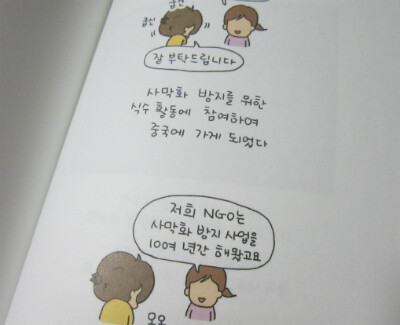 굽신
굽신
잘 부탁드립니다
사막화 방지를 위한
식수 활동에 참여하여
중국에 가게 되었다
저희 NGO는
사막화 방지 사업을
10여 년간 해왔고요
오오